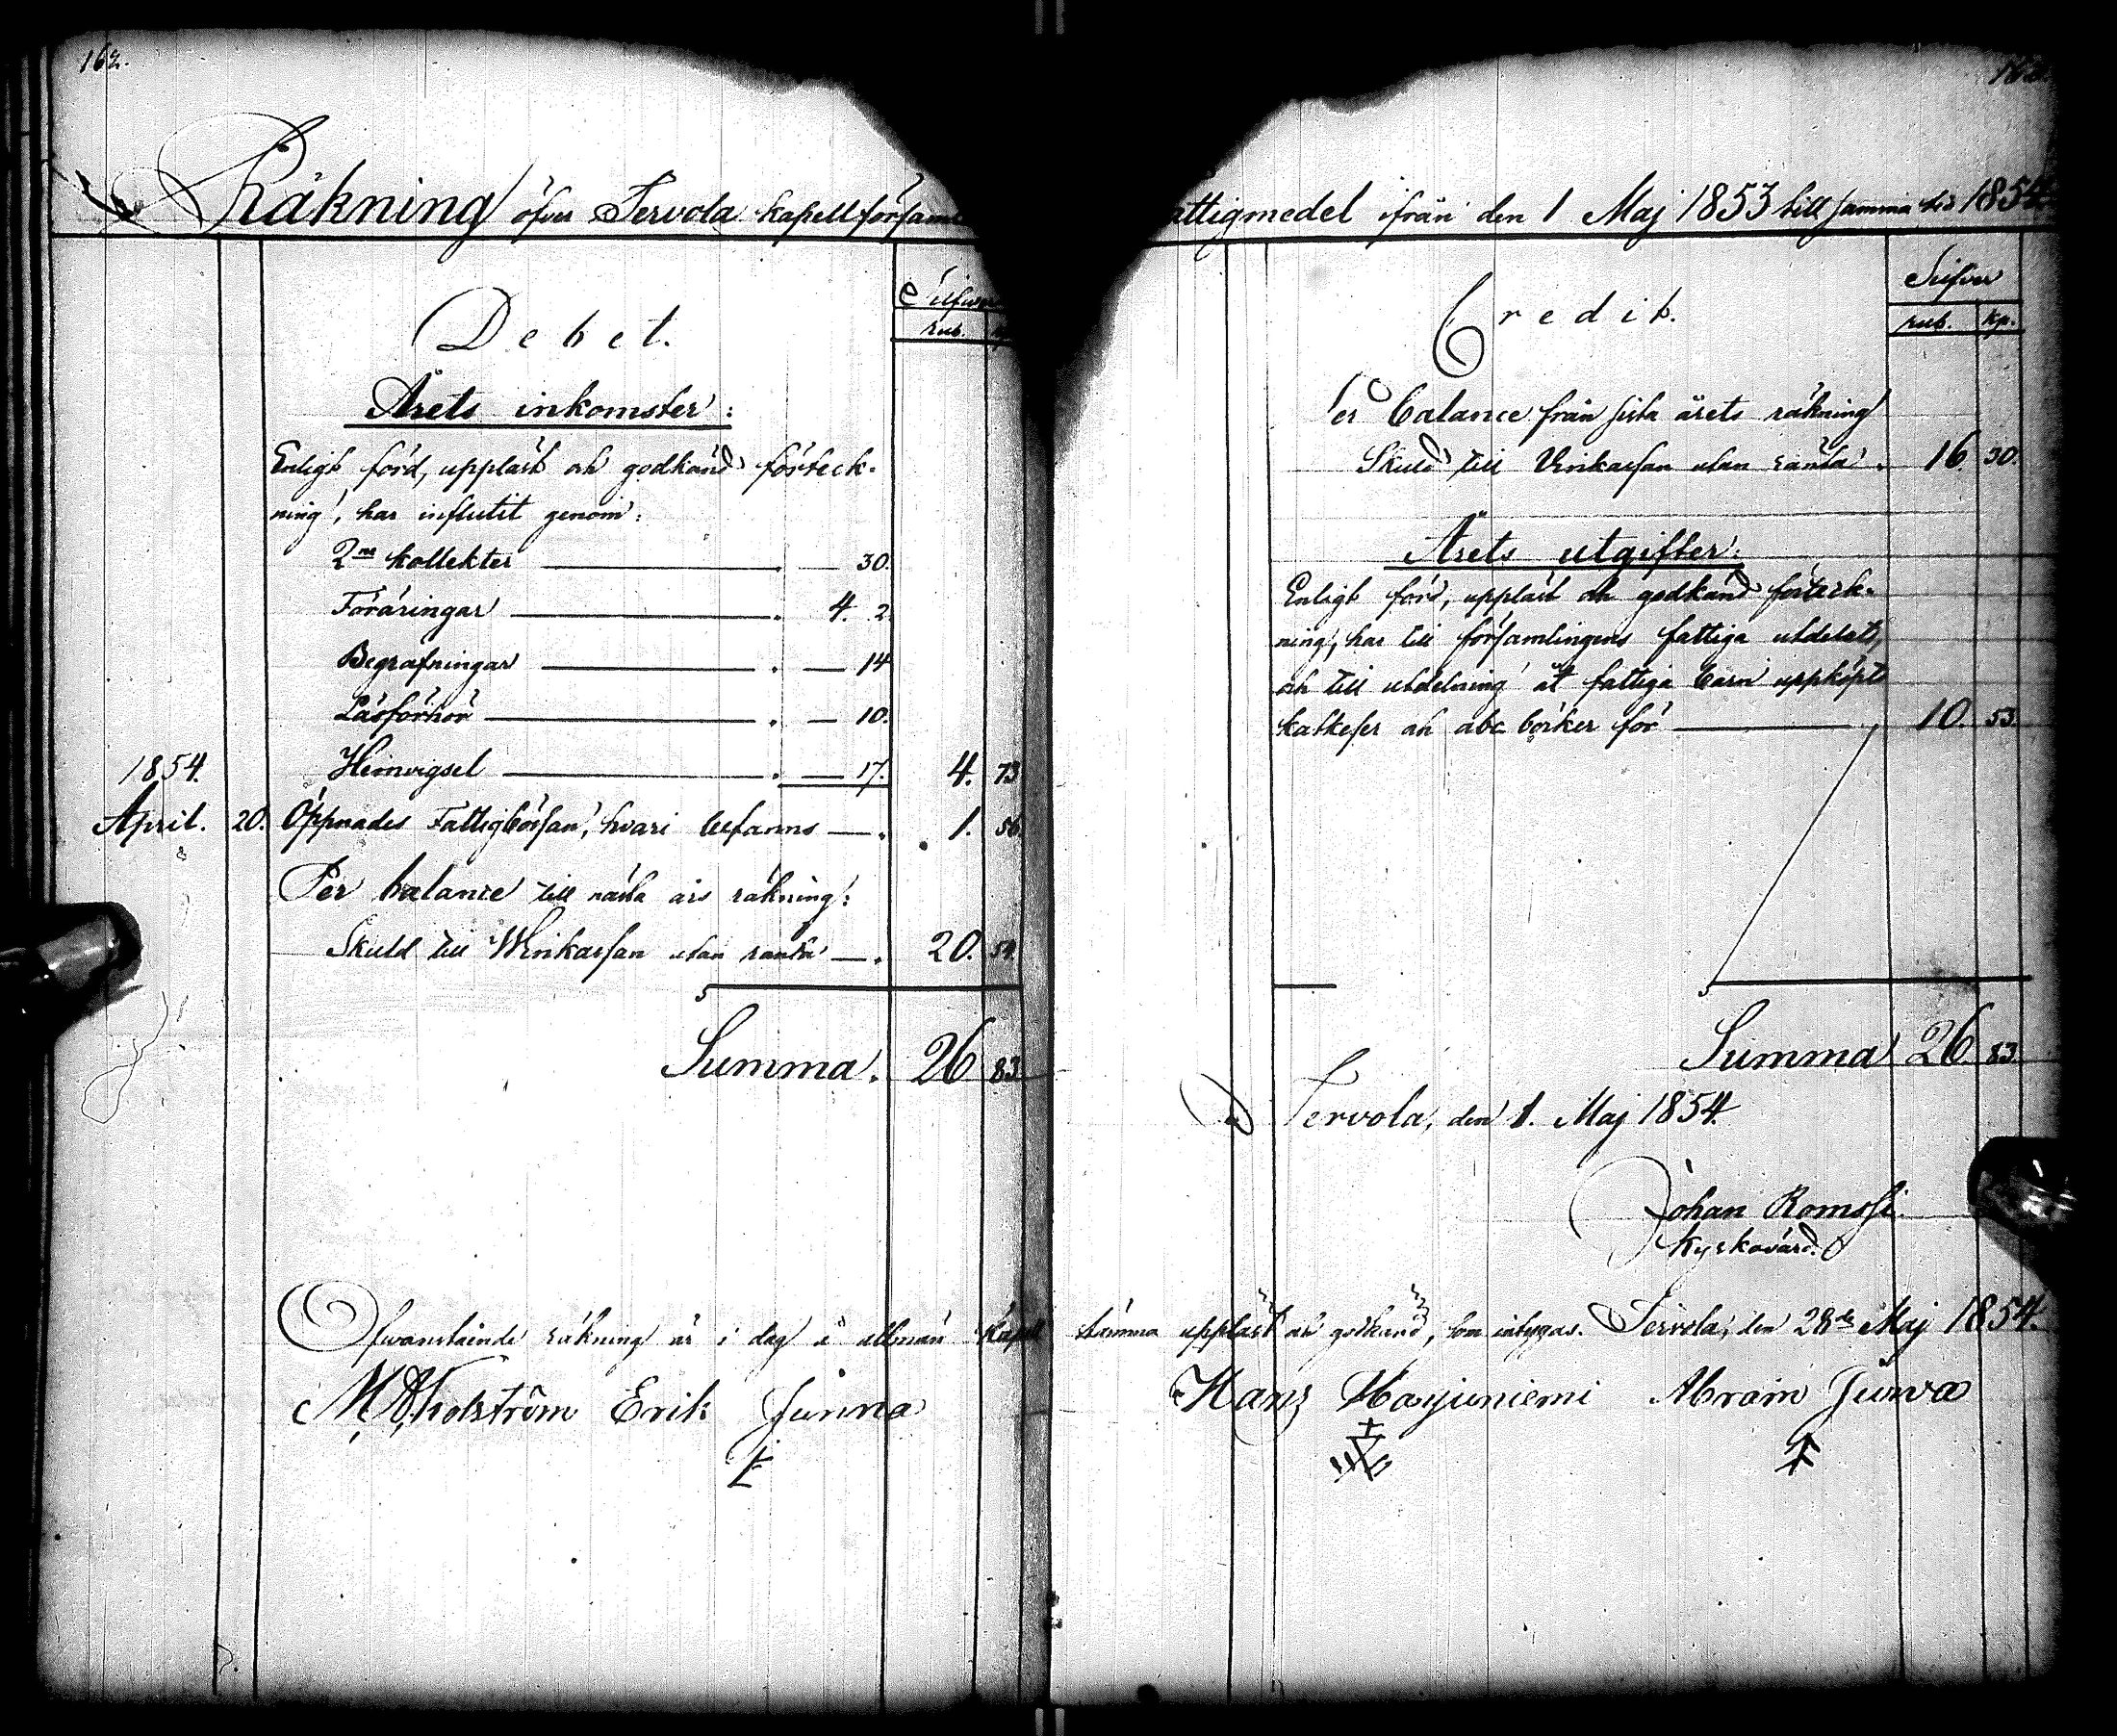 162.
Räkning öfver Tervola kapellförsaml
Debet.
Silfver
rub.
Årets inkomster:
Enligt förd, uppläst och godkänd förteck-
ning, har influtit genom:
2ne kollekter — 30.
Föräringar 4. 2.
Begrafningar — 14
Läsförhör — 10.
1854. Hemvigsel — 17. 4. 73
April. 20. Öppnades Fattigbörsan, hvari befanns — 1. 56.
Per balance till nästa års räkning:
Skuld till Winkassan utan ränta — 20. 54.
Summa. 26 83.
ttigmedel ifrån den 1 Maj 1853 till samma tid 1854.
Credit.
Silfver
rub. kp.
er balance från sista årets räkning
Skuld till Vinkassan utan ränta. 16. 30.
Årets utgifter:
Enligt förd, uppläst och godkänd förteck-
ning, har till församlingens fattiga utdelats,
och till utdelning åt fattiga barn uppköpts
katkeser och abc böcker för — 10. 53.
Summa 26. 83.
Tervola, den 1. Maj 1854.
Johan Romssi.
Kyrkovärd.
Ofvanstående räkning är i dag å allmän Kapell stämma uppläst och godkänd, som intygas. Tervola, den 28de Maj 1854.
Erik Junna Hans Harjuniemi Abram Junva